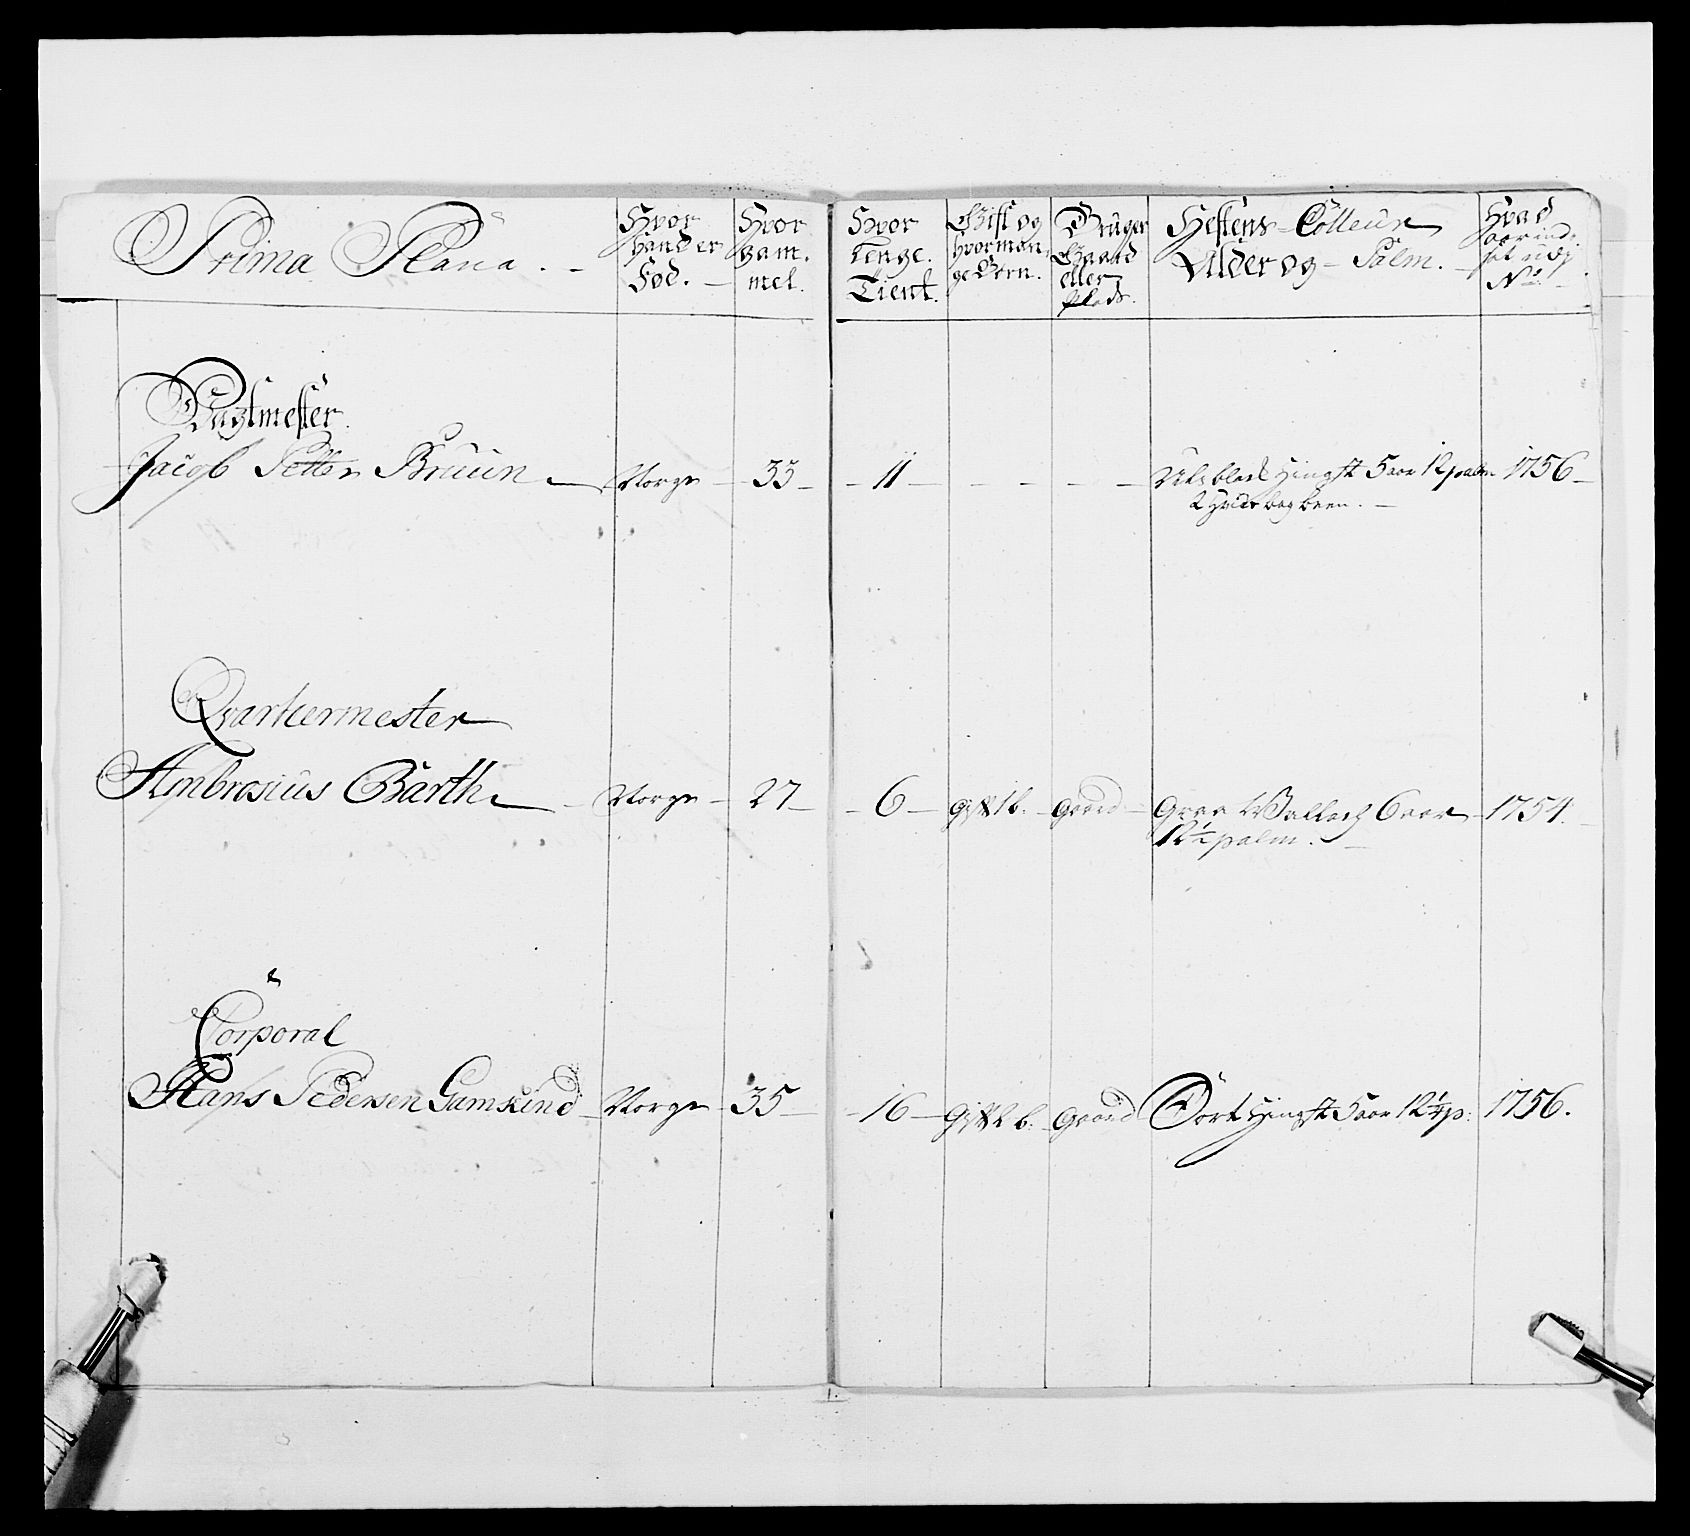 Prima Plana. -
Hvor hand er Fød. -
Hvor gam. mel.
Hvor lenge. Tient.
Gift og hvor man, ge Børn.
Bruger Gaard eller Plads.
Hestens Colleur Alder og Palm. -
Hvad aar ind.
No
Vagtmester
Jacob Petter Bruun - Norge - 33 - - 11 - - - - - blak Hingst 5 aar 12 palm 1756 -
2 hvide bag been. -
Qvarteermester
Ambrosius Barth - Norge - 27 - - 6 - Gift 1 b. - Gaard - Graa Wallach 6 aar - 1754.
12½ palm. -
Corporal
Hans Pedersen Gamkind - Norge - 35 - - 16 - Gift 2 b. Gaard Sort Hingst 5 aar 12¼ p: 1756.